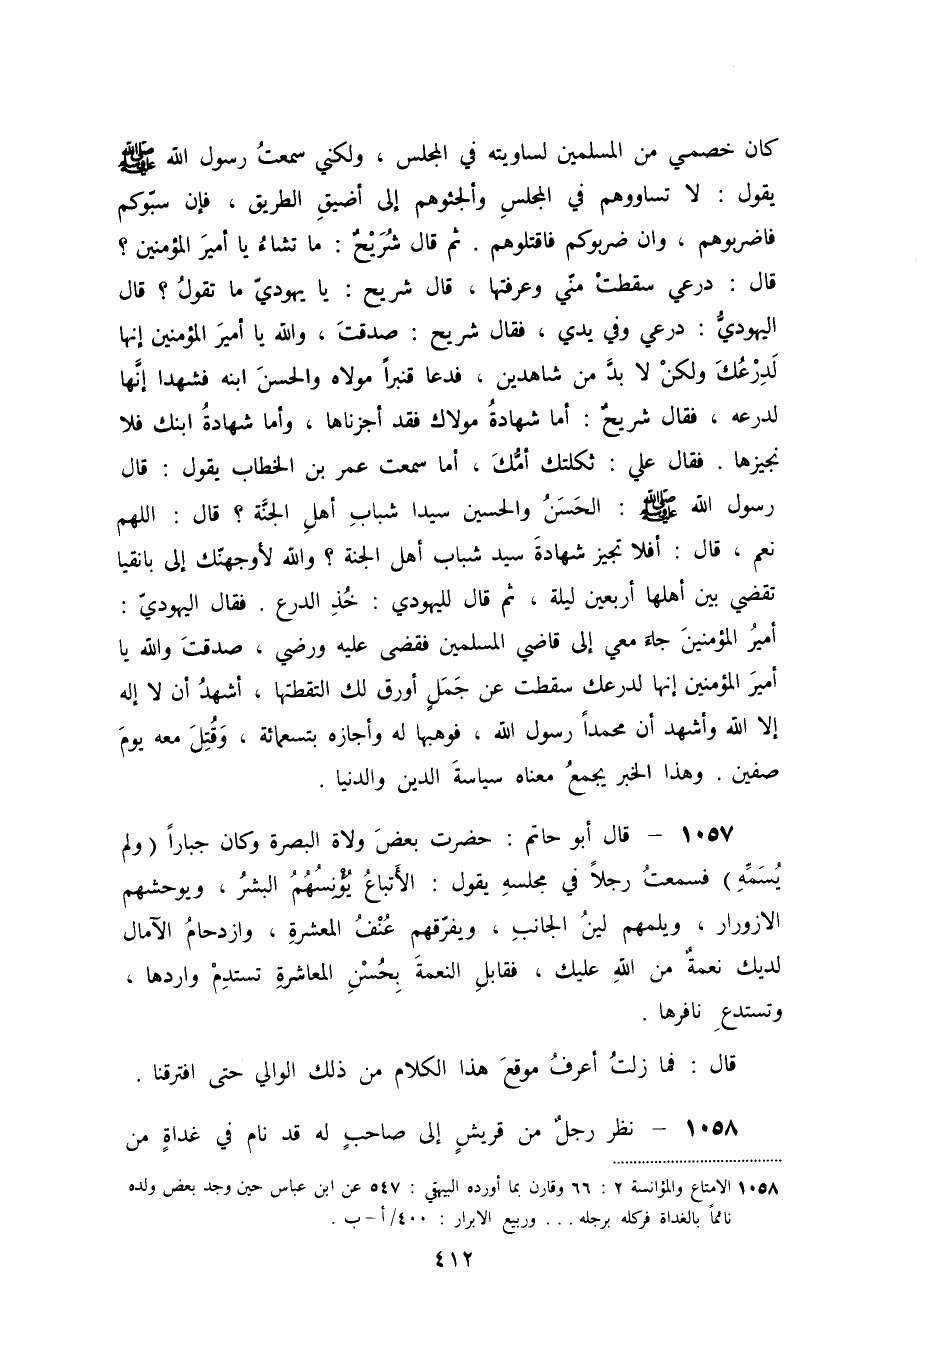 كان خصمي من المسلمين لساويته في المجلس ، ولكني سمعتُ رسول الله ﷺ
يقول : لا تساووهم في المجلسِ وألجئوهم إلى أضيقِ الطريق ، فإن سبّوكم
فاضربوهم ، وان ضربوكم فاقتلوهم . ثم قال شُرَيْحٌ : ما تشاءُ يا أميرَ المؤمنين ؟
قال : درعي سقطتْ منّي وعرفتها ، قال شريح : يا يهوديّ ما تقولُ ؟ قال
اليهوديُّ : درعي وفي يدي ، فقال شريح : صدقتَ ، والله يا أميرَ المؤمنين إنها
لَدِرْعُكَ ولكنْ لا بدَّ من شاهدين ، فدعا قنبراً مولاه والحسنَ ابنه فشهدا إنَّها
لدرعه ، فقال شريحٌ : أما شهادةُ مولاك فقد أجزناها ، وأما شهادةُ ابنك فلا
نجيزها . فقال علي : ثكلتك أمُّكَ ، أما سمعت عمر بن الخطاب يقول : قال
رسول الله ﷺ : الحَسَنُ والحسين سيدا شبابِ أهلِ الجنَّة ؟ قال : اللهم
نعم ، قال : أفلا تجيز شهادةَ سيد شباب أهل الجنة ؟ والله لأوجهنّك إلى بانقيا
تقضي بين أهلها أربعين ليلة ، ثم قال لليهودي : خُذِ الدرع . فقال اليهوديّ :
أميرُ المؤمنينَ جاءَ معي إلى قاضي المسلمين فقضى عليه ورضي ، صدقتَ والله يا
أميرَ المؤمنين إنها لدرعك سقطت عن جَمَلٍ أورق لك التقطتها ، أشهدُ أن لا إله
إلا الله وأشهد أن محمداً رسول الله ، فوهبها له وأجازه بتسعمائة ، وَقُتِلَ معه يومَ
صفين . وهذا الخبر يجمعُ معناه سياسةَ الدين والدنيا .
١٠٥٧ – قال أبو حاتم : حضرت بعضَ ولاة البصرة وكان جباراً ( ولم
يُسَمِّهِ ) فسمعتُ رجلاً في مجلسهِ يقول : الأَتباعُ يُؤْنِسُهُمُ البشرُ ، ويوحشهم
الازورار ، ويلمهم لينُ الجانبِ ، ويفرّقهم عُنْفُ المعشرةِ ، وازدحامُ الآمال
لديك نعمةٌ من اللهِ عليك ، فقابلِ النعمةَ بِحُسْنِ المعاشرةِ تستدِمْ واردها ،
وتستدعِ نافرها .
قال : فما زلتُ أعرفُ موقعَ هذا الكلام من ذلك الوالي حتى افترقنا .
١٠٥٨ – نظر رجلٌ من قريشٍ إلى صاحبٍ له قد نام في غداةٍ من
١٠٥٨ الامتاع والمؤانسة ٢ : ٦٦ وقارن بما أورده البيهقي : ٥٤٧ عن ابن عباس حين وجد بعض ولده
نائماً بالغداة فركله برجله . . . وربيع الابرار : ٤٠٠/أ – ب .
٤١٢